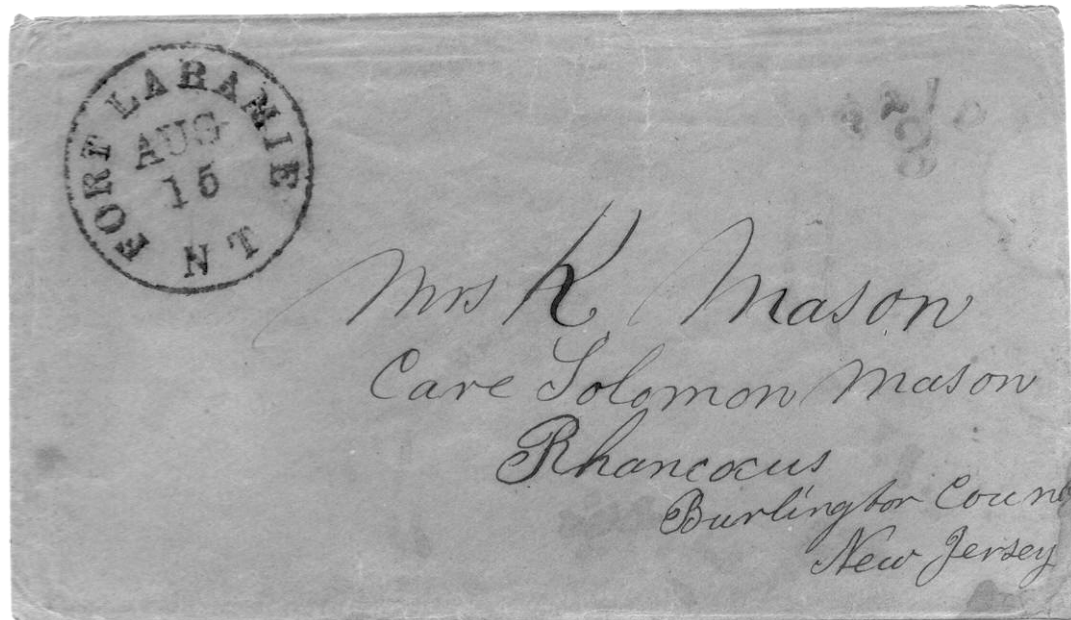 FORT LARAMIE N T
AUG
15
Mrs K Mason
Care Solomon Mason
Rhancocus
Burlington County
New Jersey